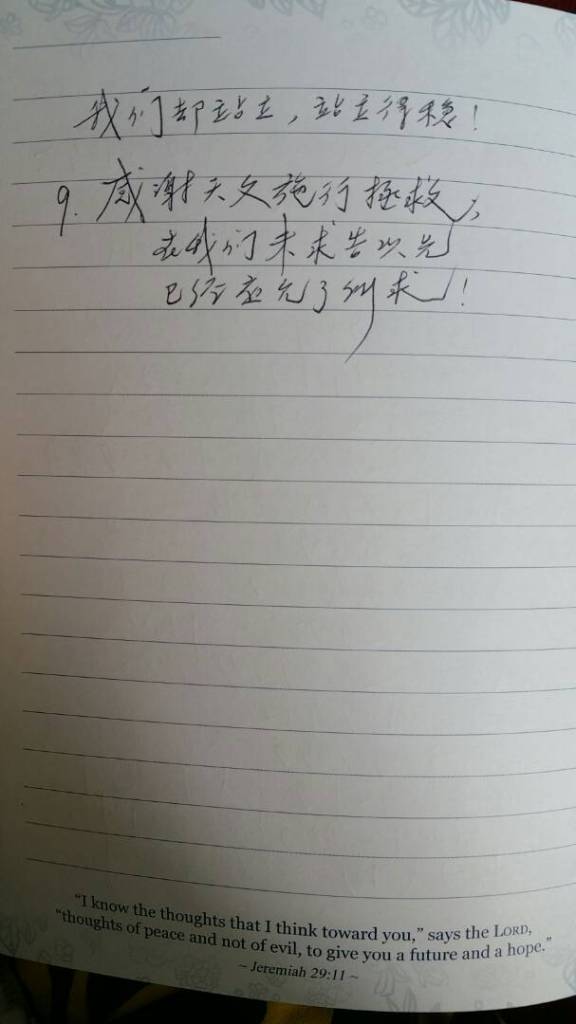 我们却站立，站立得稳！
9. 感谢天父施行拯救，
在我们未求告以先
已经应允了所求！
“I know the thoughts that I think toward you,” says the LORD,
“thoughts of peace and not of evil, to give you a future and a hope.”
~ Jeremiah 29:11 ~